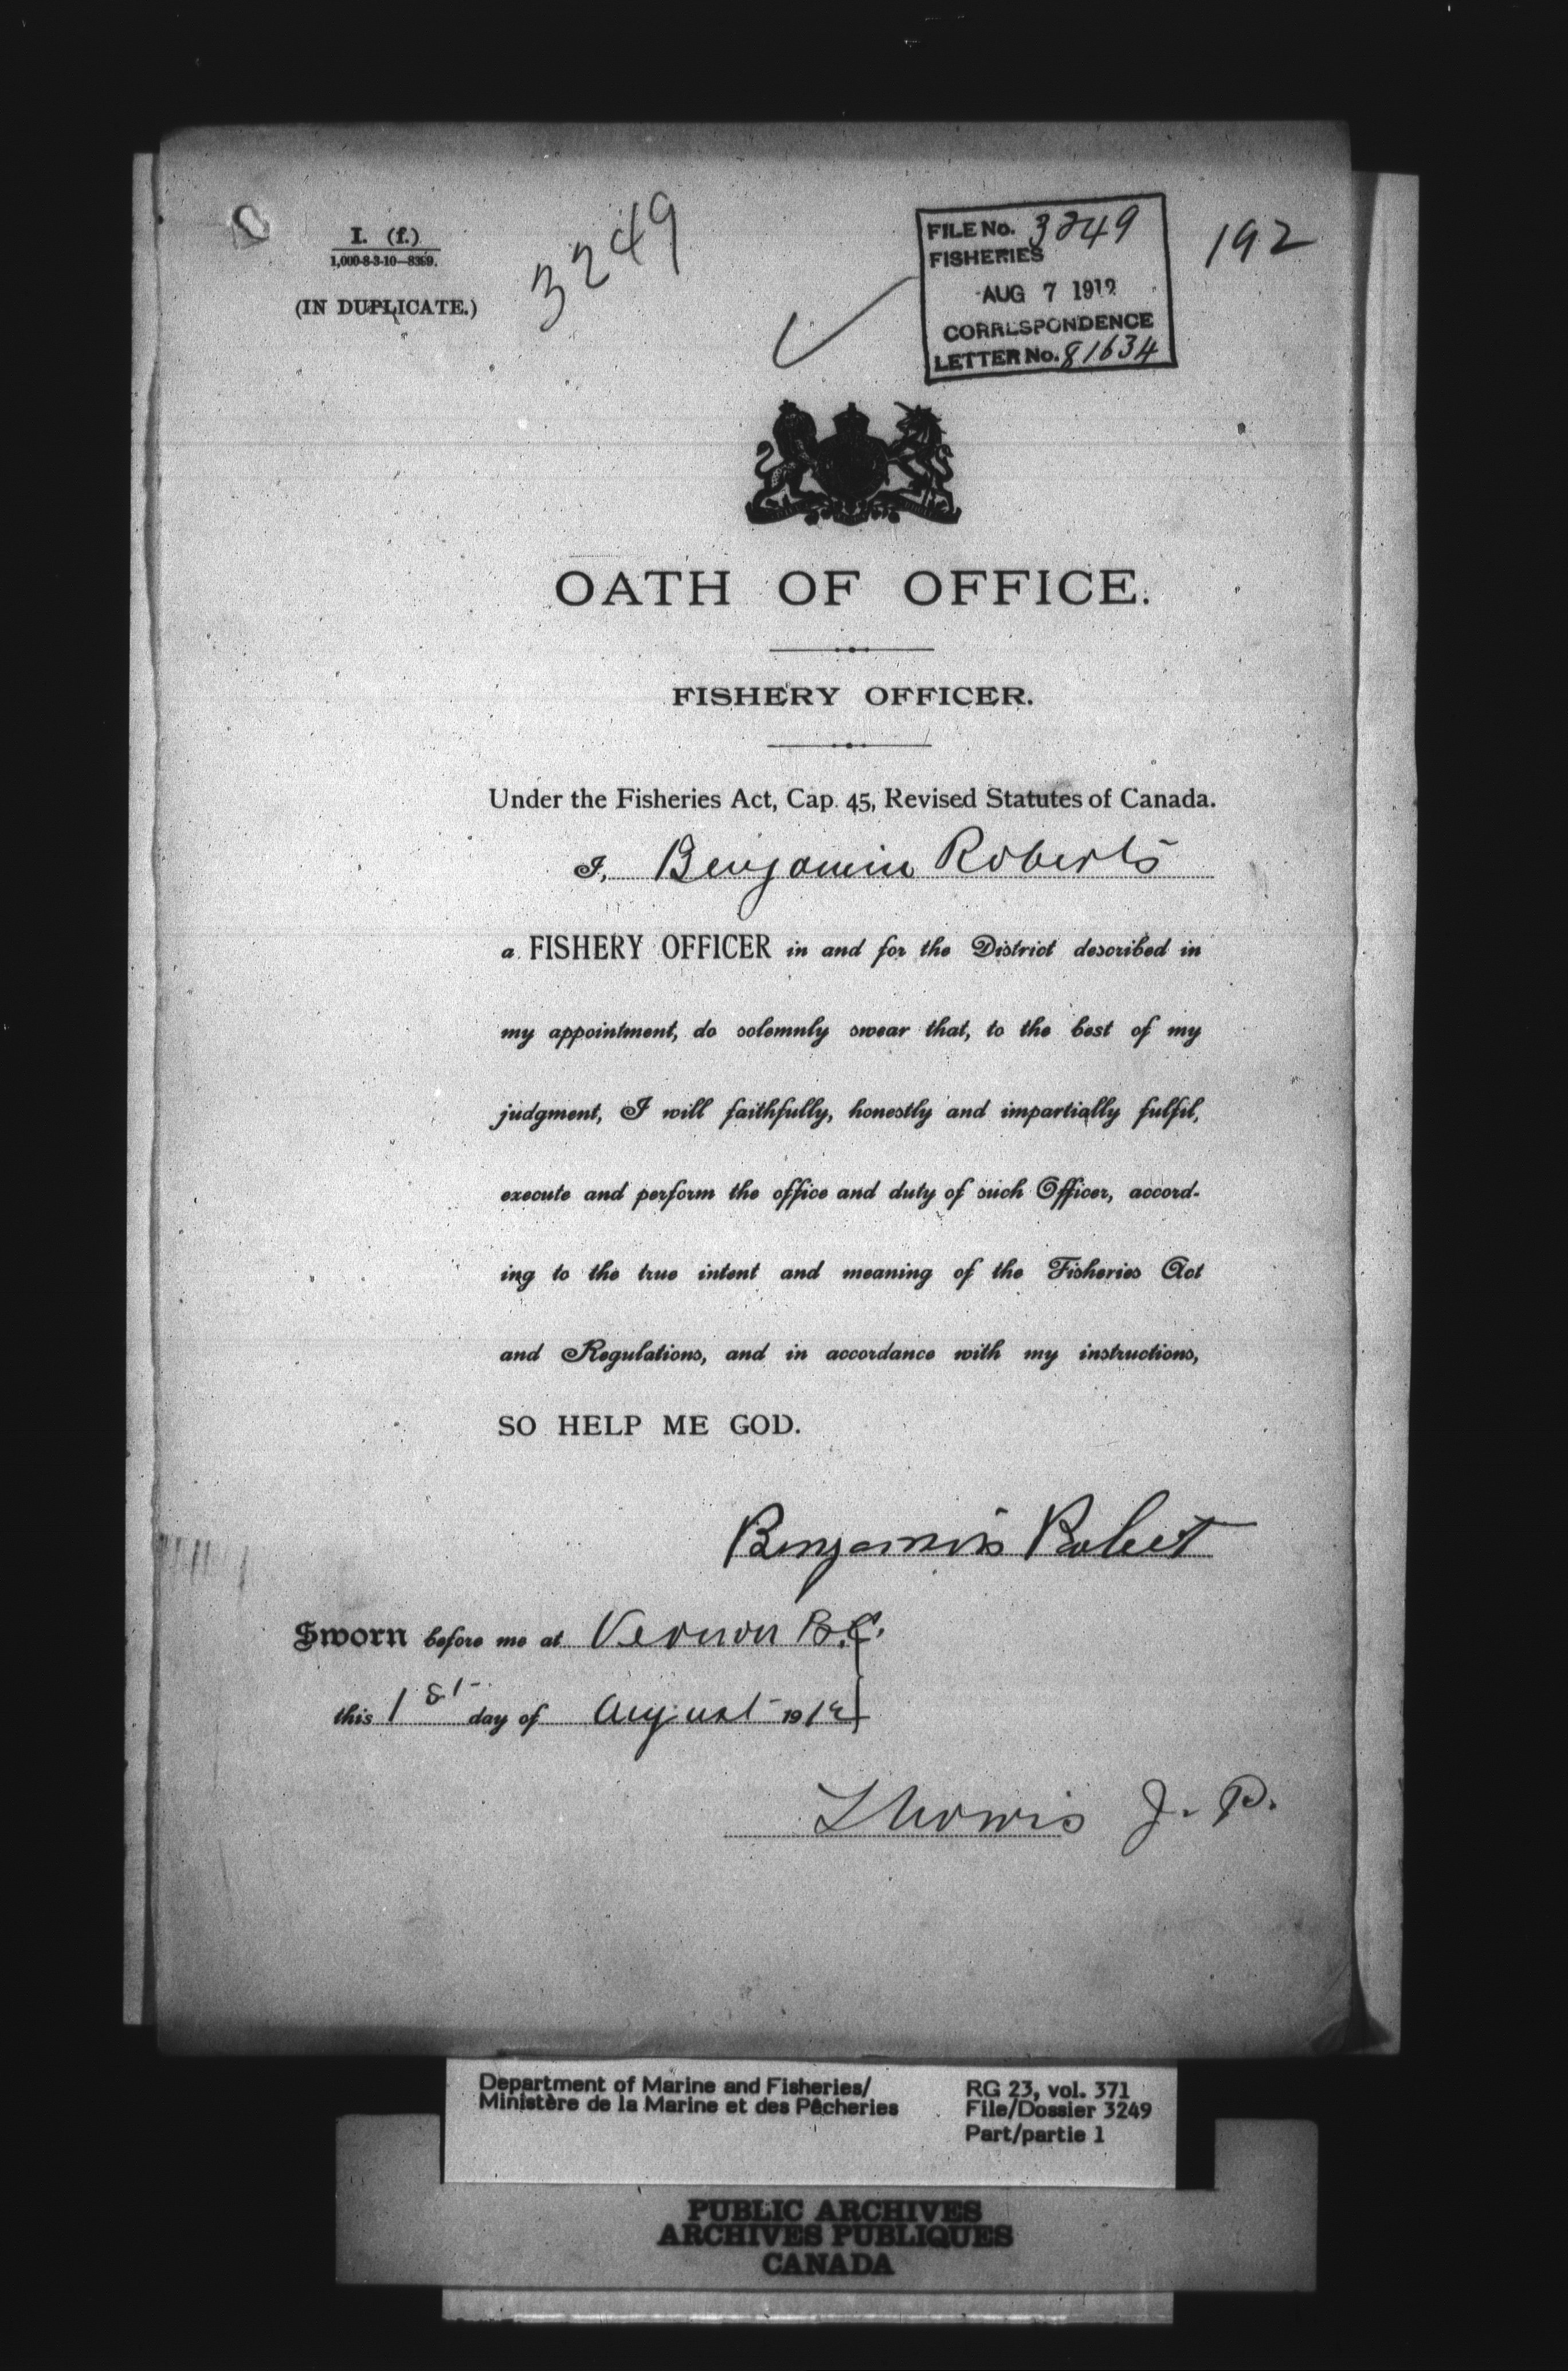 I. (f.)
1,000-8-3-10—8369.
(IN DUPLICATE.)
3249
FILE No. 3249
FISHERIES
AUG 7 1912
CORRESPONDENCE
LETTER No. 81634
192
OATH OF OFFICE.
FISHERY OFFICER.
Under the Fisheries Act, Cap. 45, Revised Statutes of Canada.
I, Benjamin Roberts
a FISHERY OFFICER in and for the District described in
my appointment, do solemnly swear that, to the best of my
judgment, I will faithfully, honestly and impartially fulfil,
execute and perform the office and duty of such Officer, accord-
ing to the true intent and meaning of the Fisheries Act
and Regulations, and in accordance with my instructions,
SO HELP ME GOD.
Benjamin Robert
Sworn before me at Vernon B.C.
this 1st day of August 1912
J. P.
Department of Marine and Fisheries/
Ministère de la Marine et des Pêcheries
RG 23, vol. 371
File/Dossier 3249
Part/partie 1
PUBLIC ARCHIVES
ARCHIVES PUBLIQUES
CANADA